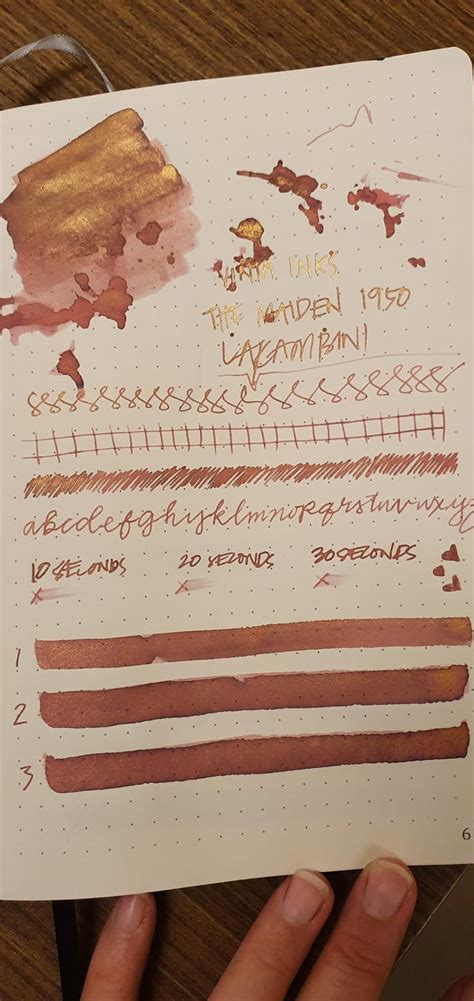 VINTA INKS
THE MAIDEN 1950
LAKAMBINI
abcdefghijklmnopqrstuvwxyz
10 SECONDS 20 SECONDS 30 SECONDS
X X X
1
2
3
6